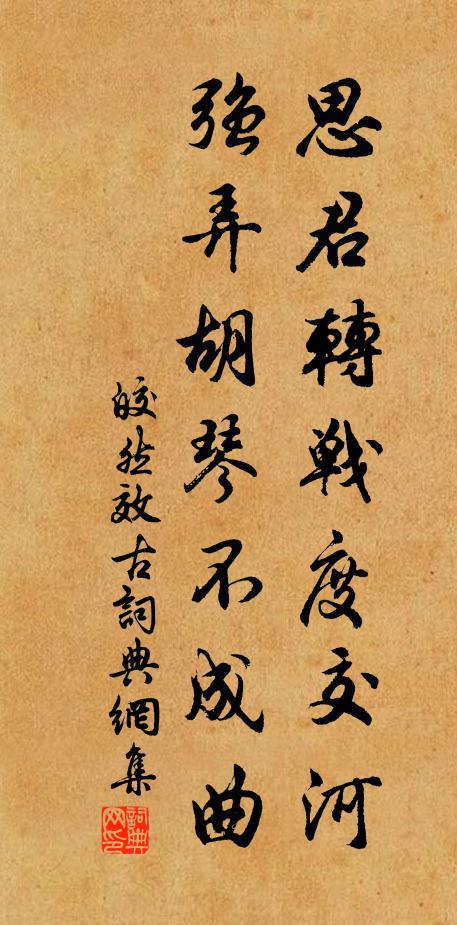 思君轉戰度交河
强弄胡琴不成曲
皎然效古詞典網集
詞典网印